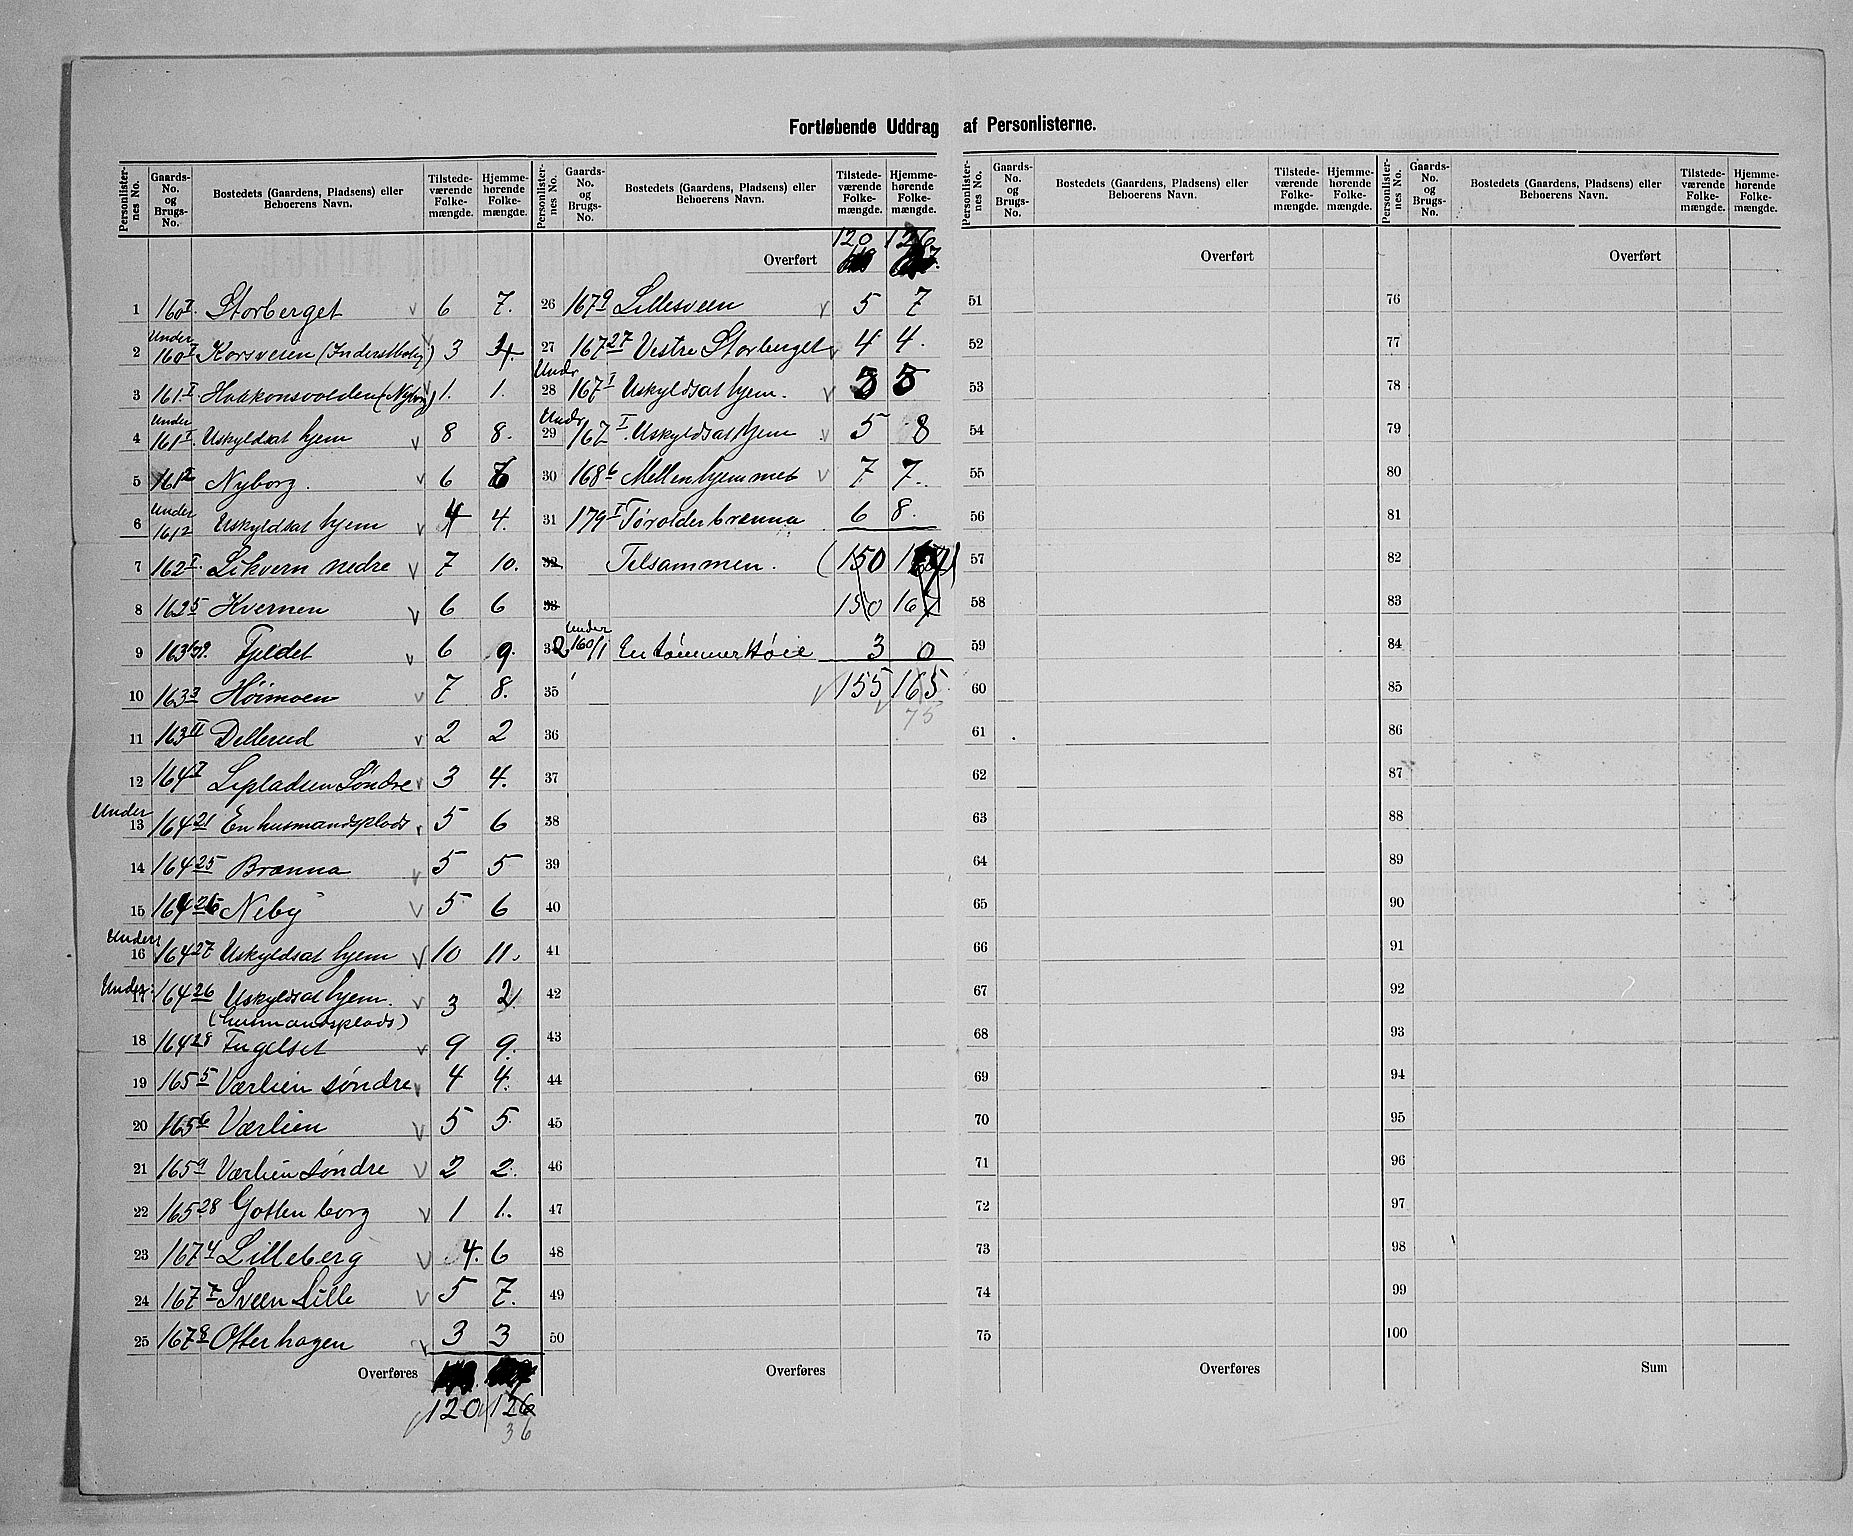 Fortløbende Uddrag af Personlisterne.
Personlister-nes No. Gaards-No. og Brugs-No. Bostedets (Gaardens, Pladsens) eller Beboerens Navn. Tilstede-værende Folke-mængde. Hjemme-hørende Folke-mængde.
1 160 1. Storberget v 6 7.
2 Under 160 1 Korsveien (Inderstbolig) v 3 4.
3 161 1 Haakonsvolden (Nyborg) v 1. 1.
4 Under 161 1. Uskyldsat hjem v 8 8.
5 161 2 Nyborg. v 6 6
6 Under 161/2 Uskyldsat hjem v 4 4.
7 162 1. Likvern nedre v 7 10.
8 162 5 Kvernen v 6 6
9 163 Fjeldet v 6 9.
10 163 3 Höimoen v 7 8.
11 163 11 Dellerud v 2 2
12 164 1 Lipladsen Söndre v 3 4.
13 Under 164 21 En husmandsplads v 5 6
14 164 25 Brænna v 5 5
15 164 26 Neby v 5 6
16 Under 164 27 Uskyldsat hjem v 10 11.
17 Under 164 26 Uskyldsat hjem. v 3 2
(husmandsplads)
18 164 28 Fugelset v 9 9.
19 165 5 Værlien söndre v 4 4.
20 165 6 Værlien v 5 5.
21 165 9 Værlien söndre v 2 2.
22 165 28 Gottenborg v 1 1.
23 167 4 Lilleberg v 4. 6
24 167 7 Sveen Lille v 5 7.
25 167 8 Otterhagen v 3 3
Overføres
120 126
36
Personlister-nes No. Gaards-No. og Brugs-No. Bostedets (Gaardens, Pladsens) eller Beboerens Navn. Tilstede-værende Folke-mængde. Hjemme-hørende Folke-mængde.
120 126
Overført
26 167 9 Lillesveen v 5 7
27 167 27 Vestre Storberget v 4 4.
28 Under 167 1 Uskyldsat hjem. v 3 5
29 Under 167 1. Uskyldsat hjem v 5 8
30 168 6 Mellenhjemmet v 7 7.
31 179 1 Törolderbrænna 6 8.
32 Tilsammen. (150
33 150 167
32 Under 160/1 En tömmerköie 3 0
35 v 155 v 165
75
36
37
38
39
40
41
42
43
44
45
46
47
48
49
50
Overføres
Personlister-nes No. Gaards-No. og Brugs-No. Bostedets (Gaardens, Pladsens) eller Beboerens Navn. Tilstede-værende Folke-mængde. Hjemme-hørende Folke-mængde.
Overført
51
52
53
54
55
56
57
58
59
60
61
62
63
64
65
66
67
68
69
70
71
72
73
74
75
Overføres
Personlister-nes No. Gaards-No. og Brugs-No. Bostedets (Gaardens, Pladsens) eller Beboerens Navn. Tilstede-værende Folke-mængde. Hjemme-hørende Folke-mængde.
Overført
76
77
78
79
80
81
82
83
84
85
86
87
88
89
90
91
92
93
94
95
96
97
98
99
100
Sum